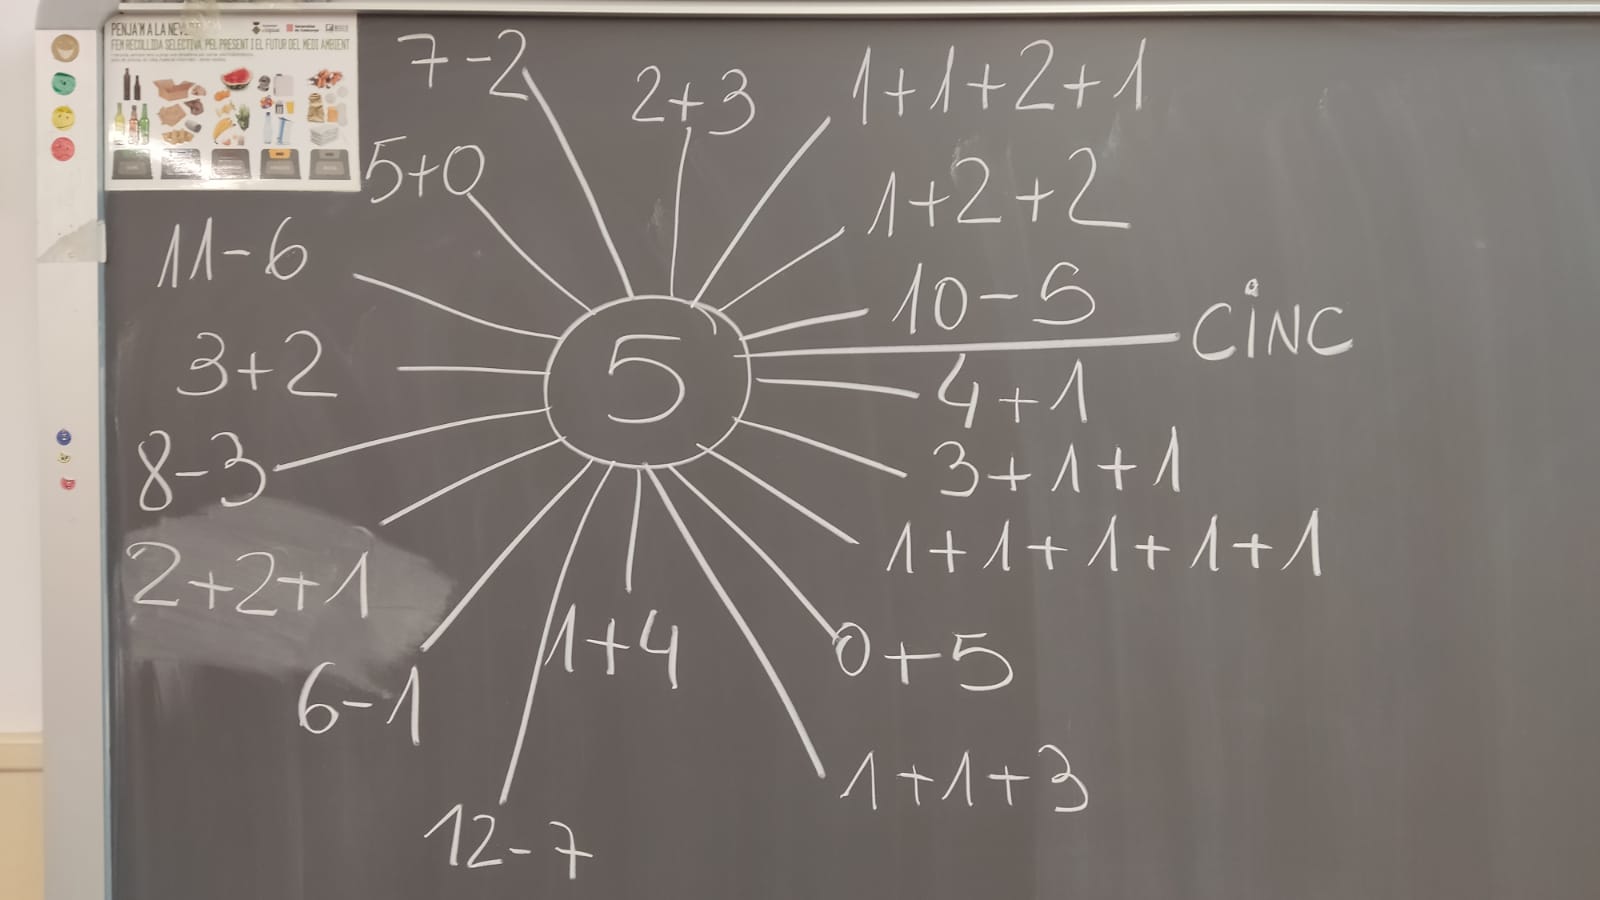 PENJA'M A LA NEVERA
FEM RECOLLIDA SELECTIVA, PEL PRESENT I EL FUTUR DEL MEDI AMBIENT
7-2
2+3
1+1+2+1
5+0
1+2+2
11-6
10-5
CINC
3+2
5
4+1
8-3
3+1+1
2+2+1
1+1+1+1+1
6-1
1+4
0+5
12-7
1+1+3